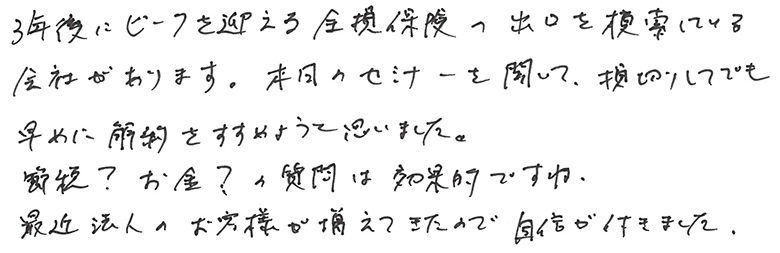 3年後にピークを迎える全損保険の出口を模索している
会社があります。本日のセミナーを聞いて、損切りしてでも
早めに解約をすすめようと思いました。
節税？お金？の質問は効果的ですね。
最近法人のお客様が増えてきたので自信が付きました。